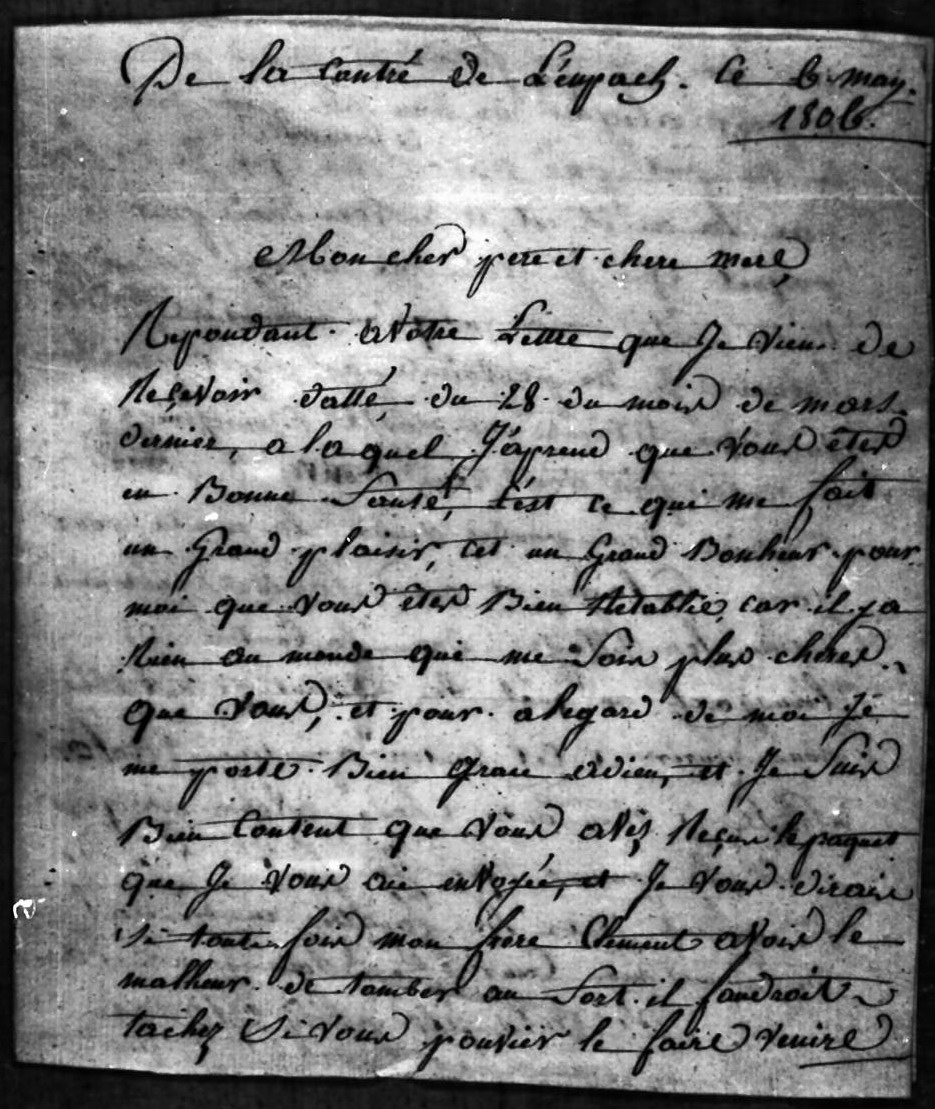 De la contré de Léupach. Ce 6 may.
1806.
Mon cher pere et chere mere,
Repondant a votre Lettre que Je vien de
Reçevoir datté, du 28 du mois de mars
dernier, a la quel J'áprend que vous étes
en Bonne Santé, C'est ce qui me fait
un Grand plaisir, cet un Grand Bonheur pour
moi que vous étes Bien Retablie, car il y a
Rien au monde qui me Sois plus cheres
que vous, et pour a legard de moi Je
me porte Bien Grace a dieu, et Je Suis
Bien Content que vous avés Reçus le paquet
que Je vous aie envoyée, et Je vous dirais
Si toute fois mon frere Clement avois le
malheur de tomber au Sort il faudroit
tachez Si vous pouvier le faire venire